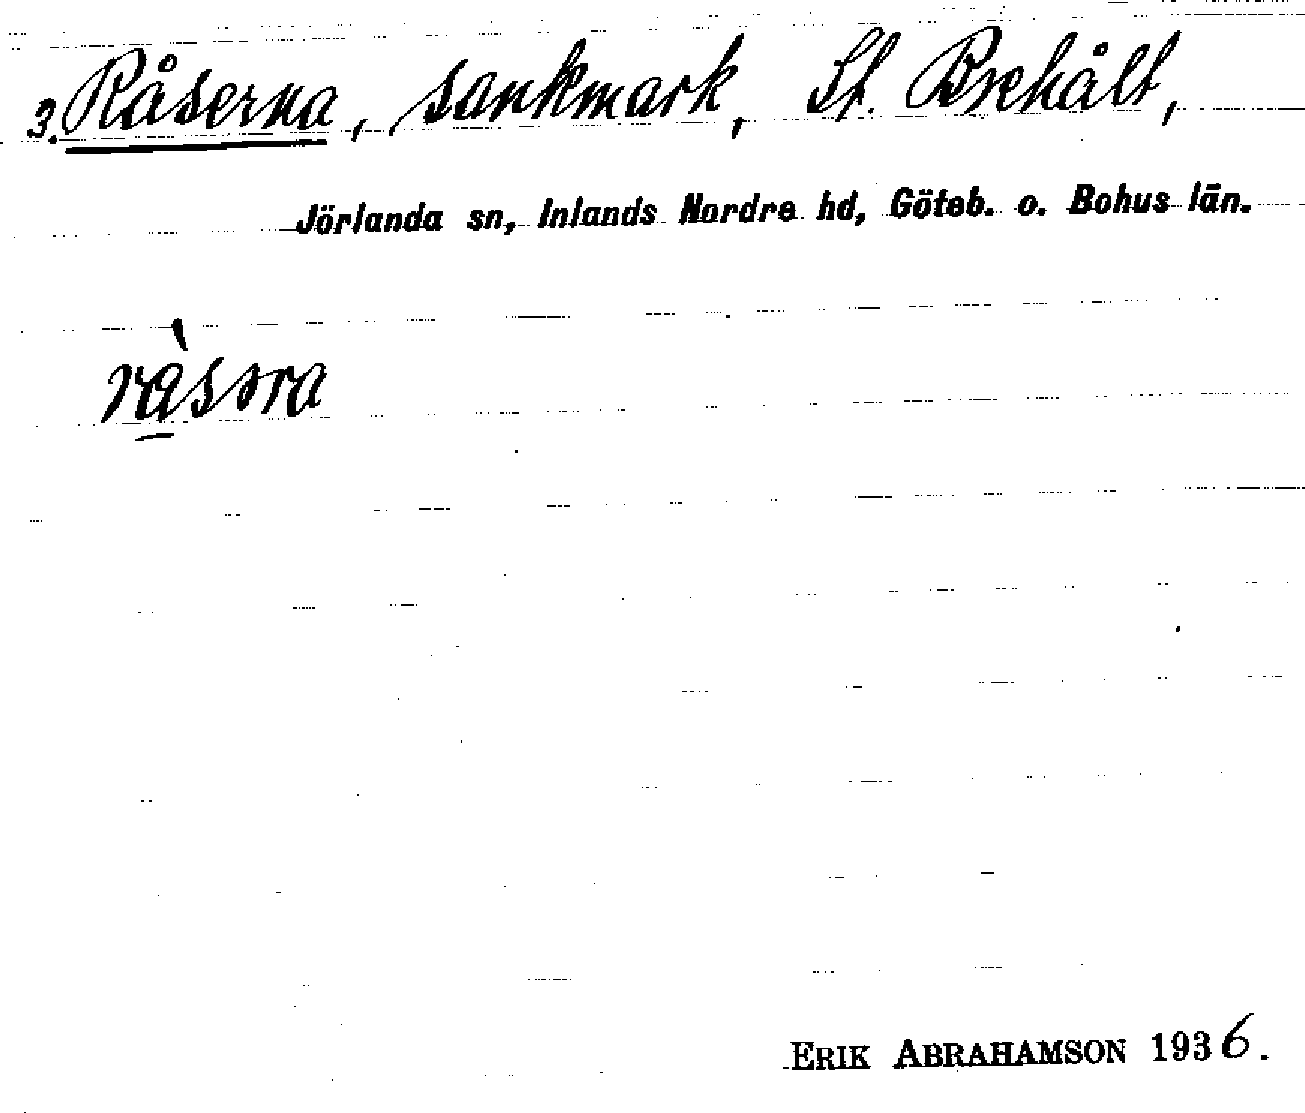 3. Råserna, sankmark, St. Brehålt,
Jörlanda sn, Inlands Nordre hd, Göteb. o. Bohus län.
ràsəra
ERIK ABRAHAMSON 1936.